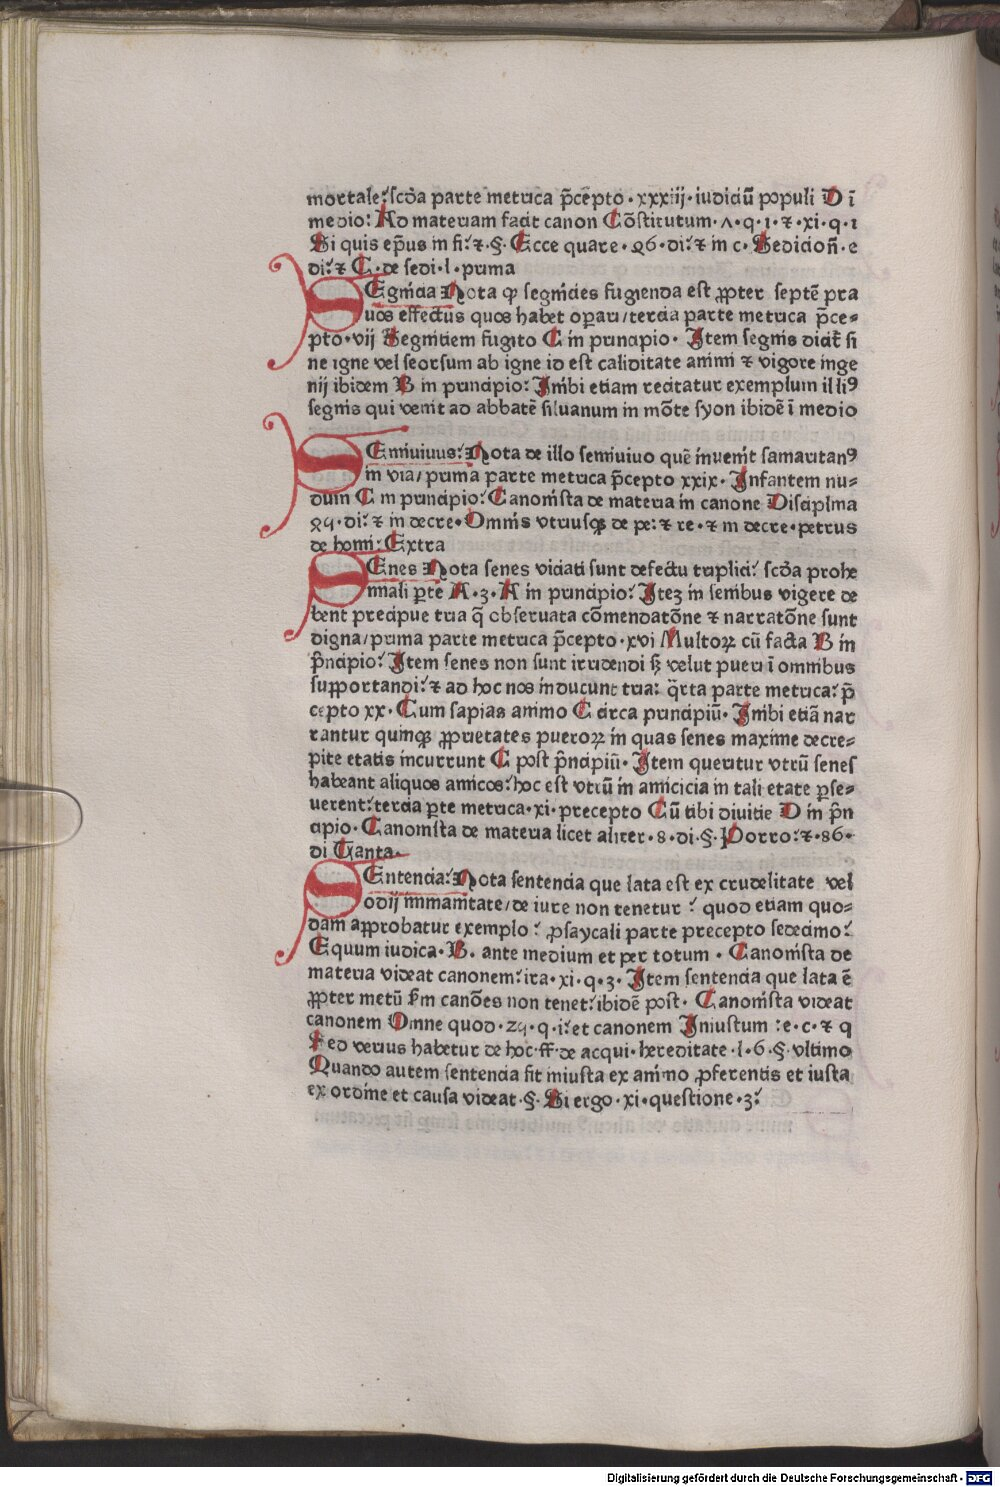 mortale:ʼ scd̃a parte metrica p̃cepto · xxxiiij · iudiciũ populi D ĩ
medio: Ad materiam facit canon Cõstitutum · ʌ · q · ı · ⁊ · xi · q · ı
Si quis ep̃us in fi:ʼ ⁊ · § · Ecce quare · 26 · di:ʼ ⁊ in c · Sedicioñ · e
di:ʼ ⁊ C · de sedi · l · prima
SEgnicia Nota ꝙ segnicies fugienda est ꝓpter septẽ pra
uos effectus quos habet oꝑari / tercia parte metrica p̃ce-
pto · vij Segniciem fugito C in principio · Item segnis dicit̃ si
ne igne vel seorsum ab igne id est caliditate animi ⁊ vigore inge
nij ibidem B in principio: Inibi etiam recitatur exemplum illiꝰ
segnis qui venit ad abbatẽ siluanum in mõte syon ibidẽ ĩ medio
SEmiuiuus:ʼ Nota de illo semiuiuo quẽ inuenit samaritanꝰ
in via / prima parte metrica p̃cepto xxix · Infantem nu-
dum C in principio:ʼ Canonista de materia in canone Disciplina
⁊ in decre · Omnis vtriusqꝫ de pe: ⁊ re · ⁊ in decre · petrus
de homi: Extra
SEnes Nota senes viciati sunt defectu triplici:ʼ scd̃a prohe
mnali ꝑte A · 3 · A in principio:ʼ Iteʒ in senibus vigere de
bent precipue tria q̃ obseruata cõmendatõne ⁊ narratõne sunt
digna / prima parte metrica p̃cepto · xvi Multoꝝ cũ facta B in
p̃ncipio:ʼ Item senes non sunt irridendi sꝫ velut pueri ĩ omnibus
supportandi:ʼ ⁊ ad hoc nos inducunt tria: q̃rta parte metrica:ʼ p̃
cepto xx · Cum sapias animo C circa principiũ · Inibi etiã nar
rantur quinqꝫ ꝓprietates pueroꝝ in quas senes maxime decre-
pite etatis incurrunt C post p̃ncipiũ · Item queritur vtrũ senes
habeant aliquos amicos:ʼ hoc est vtrũ in amicicia in tali etate ꝑse-
uerent:ʼ tercia ꝑte metrica · xi · precepto Cũ tibi diuitie D in p̃n
cipio · Canonista de materia licet aliter · 8 · di · § · Porro:ʼ ⁊ · 86 ·
di Tanta ·
SEntencia:ʼ Nota sentencia que lata est ex crudelitate vel
odij immanitate / de iure non tenetur :ʼ quod etiam quo-
dam approbatur exemplo :ʼ ꝓsaycali parte precepto sedecimo:ʼ
Equum iudica · B · ante medium et per totum · Canonista de
materia videat canonem:ʼ ira · xi · q · 3 · Item sentencia que lata ẽ
ꝓpter metũ s̃m canões non tenet:ʼ ibidẽ post · Canonista videat
canonem Omne quod · q · i:ʼ et canonem Iniustum :ʼ e · c · ⁊ q
Sed verius habetur de hoc · ff · de acqui · hereditate · l · 6 · § · vltimo
Quando autem sentencia fit iniusta ex animo ꝓferentis et iusta
ex ordine et causa videat · § · Si ergo · xi · questione · 3:ʼ
Digitalisierung gefördert durch die Deutsche Forschungsgemeinschaft - DFG